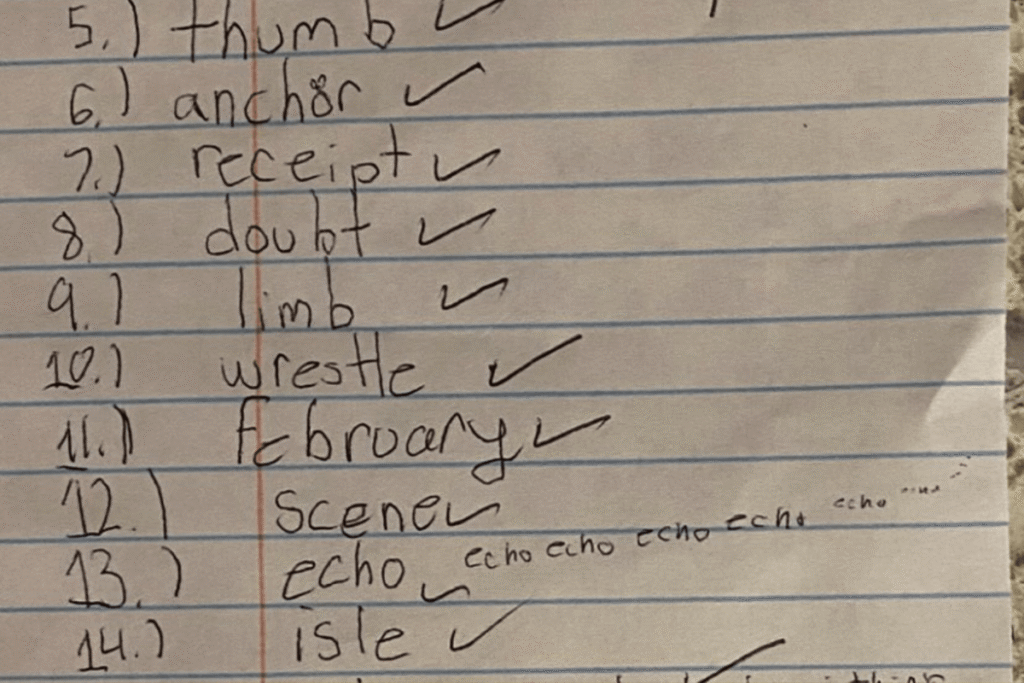 5.) thumb ✓
6.) anchor ✓
7.) receipt ✓
8.) doubt ✓
9.) limb ✓
10.) wrestle ✓
11.) february ✓
12.) scene ✓
13.) echo ✓ echo echo echo echo echo
14.) isle ✓